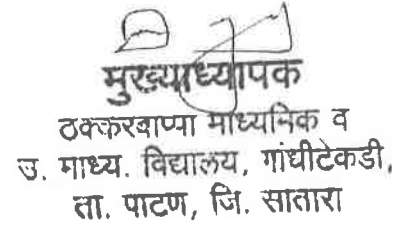 मुख्याध्यापक
ठक्करबाप्पा माध्यमिक व
उ. माध्य. विद्यालय, गांधीटेकडी,
ता. पाटण, जि. सातारा